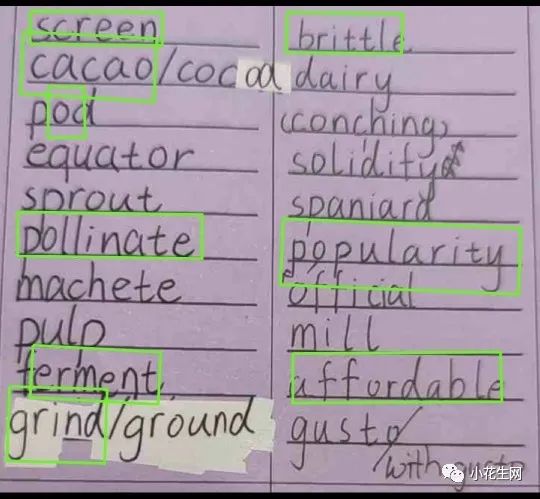 screen
cacao/cocoa
pod
equator
sprout
pollinate
machete
pulp
ferment
grind/ground
brittle
dairy
(conching)
solidify
spaniard
popularity
official
mill
affordable
gusto/
with gusto
小花生网